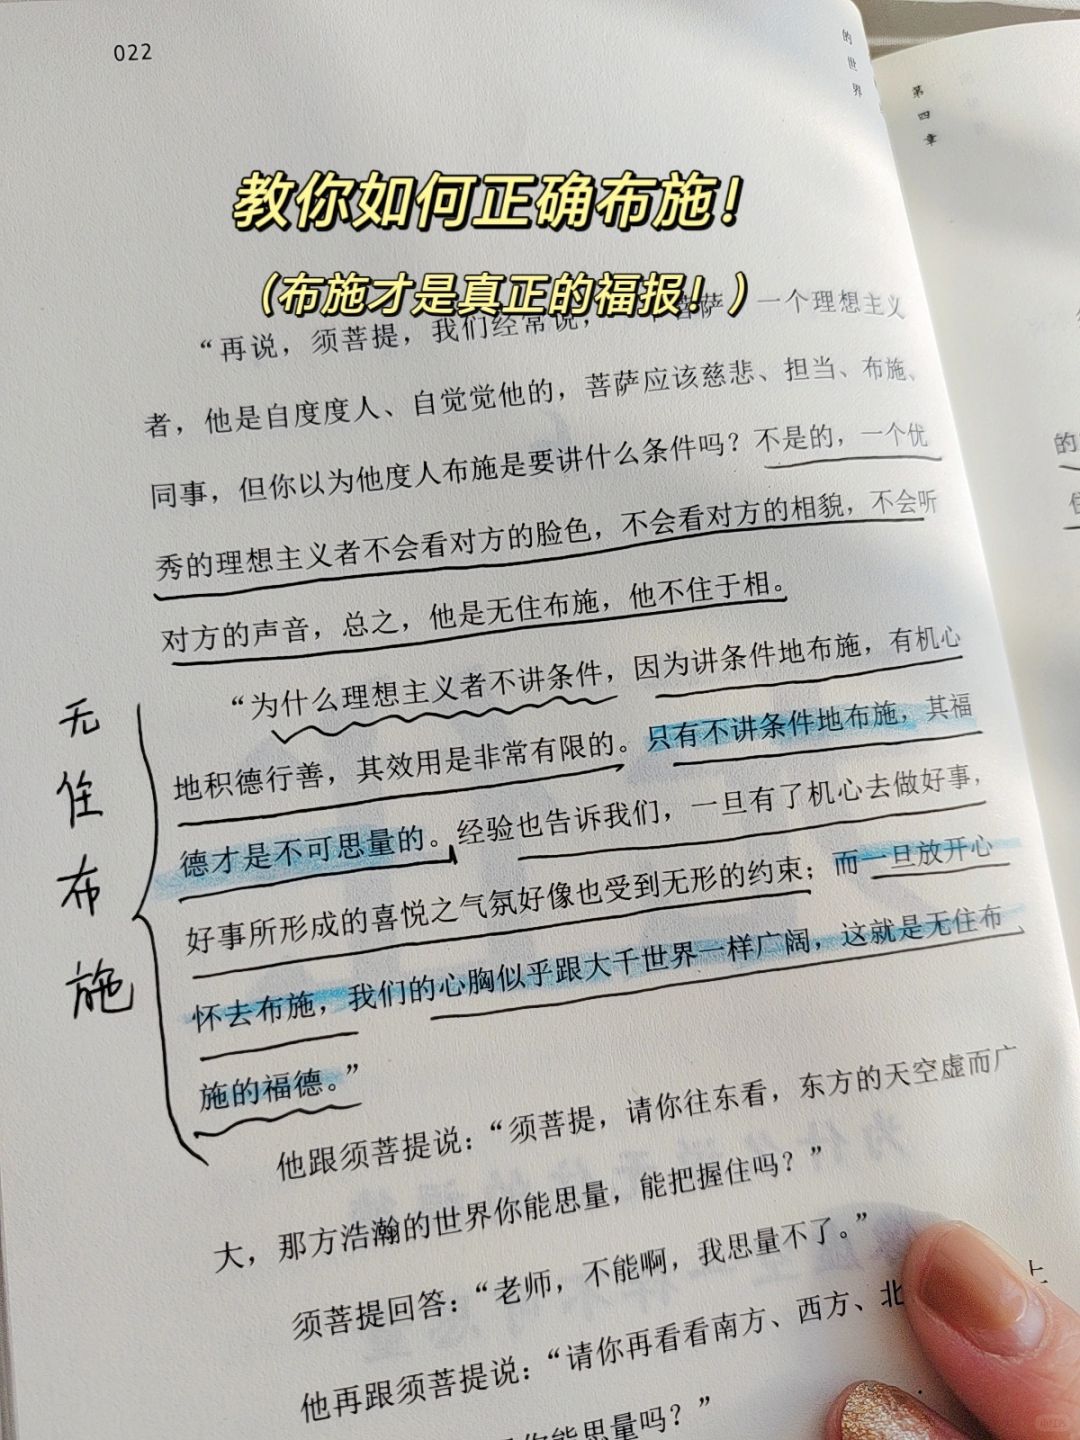 022
的世界
第四章
教你如何正确布施！
（布施才是真正的福报！）
“再说，须菩提，我们经常说，一个菩萨，一个理想主义
者，他是自度度人、自觉觉他的，菩萨应该慈悲、担当、布施、
同事，但你以为他度人布施是要讲什么条件吗？不是的，一个优
秀的理想主义者不会看对方的脸色，不会看对方的相貌，不会听
对方的声音，总之，他是无住布施，他不住于相。
“为什么理想主义者不讲条件，因为讲条件地布施，有机心
地积德行善，其效用是非常有限的。只有不讲条件地布施，其福
德才是不可思量的。经验也告诉我们，一旦有了机心去做好事，
好事所形成的喜悦之气氛好像也受到无形的约束；而一旦放开心
怀去布施，我们的心胸似乎跟大千世界一样广阔，这就是无住布
施的福德。”
无住布施
他跟须菩提说：“须菩提，请你往东看，东方的天空虚而广
大，那方浩瀚的世界你能思量，能把握住吗？”
须菩提回答：“老师，不能啊，我思量不了。”
他再跟须菩提说：“请你再看看南方、西方、北
你能思量吗？”
上
的
小红书